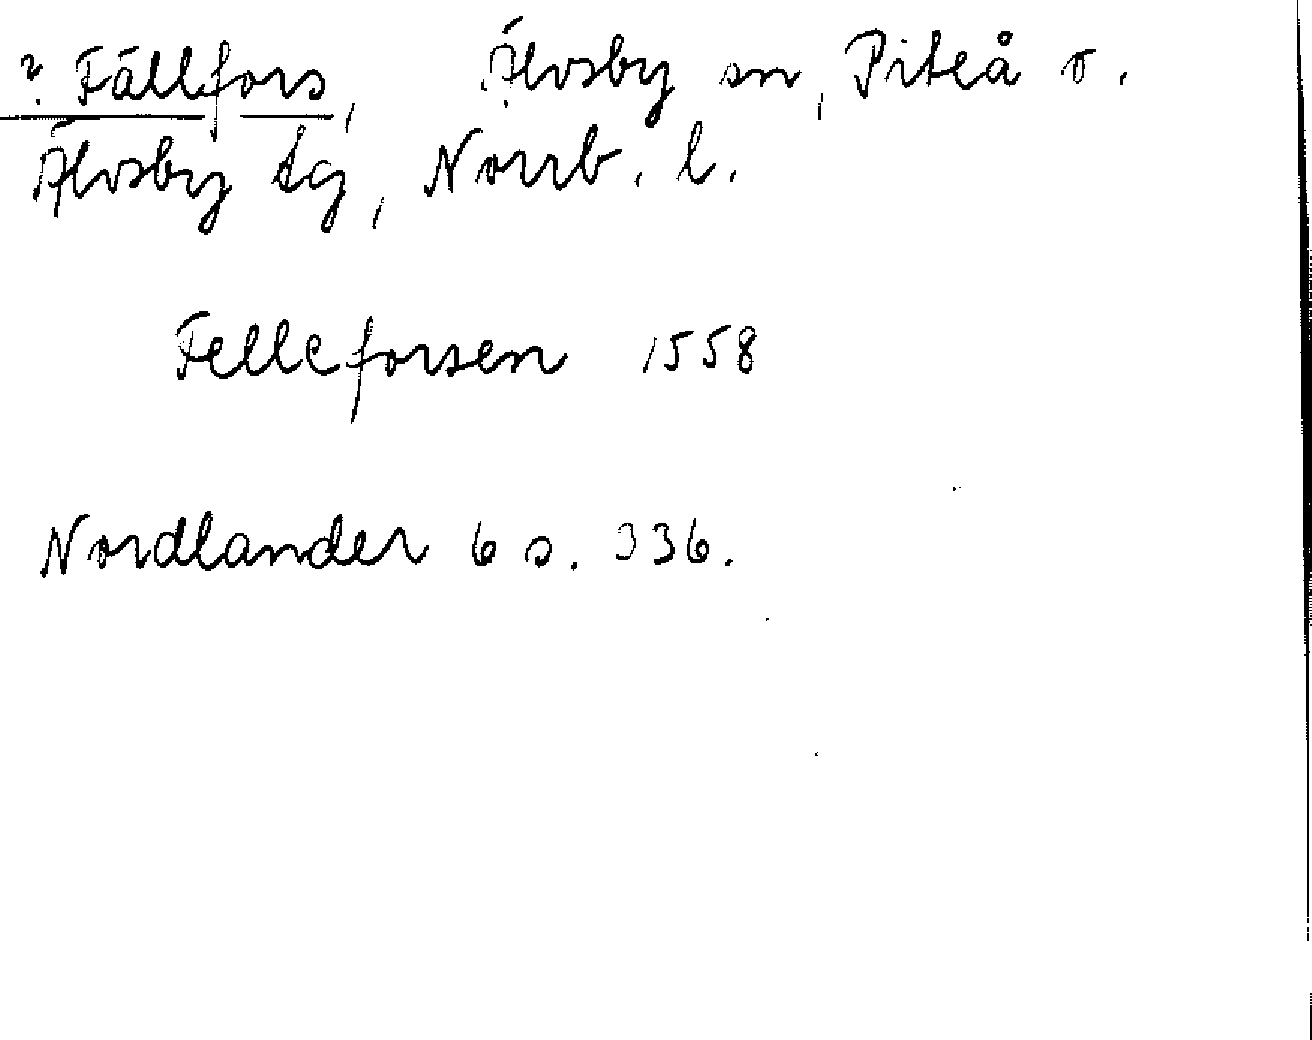 ? Fällfors, Älvsby sn, Piteå v.
Älvsby tg, Norrb. l.
Felleforsen 1558
Nordlander 6 s. 336.